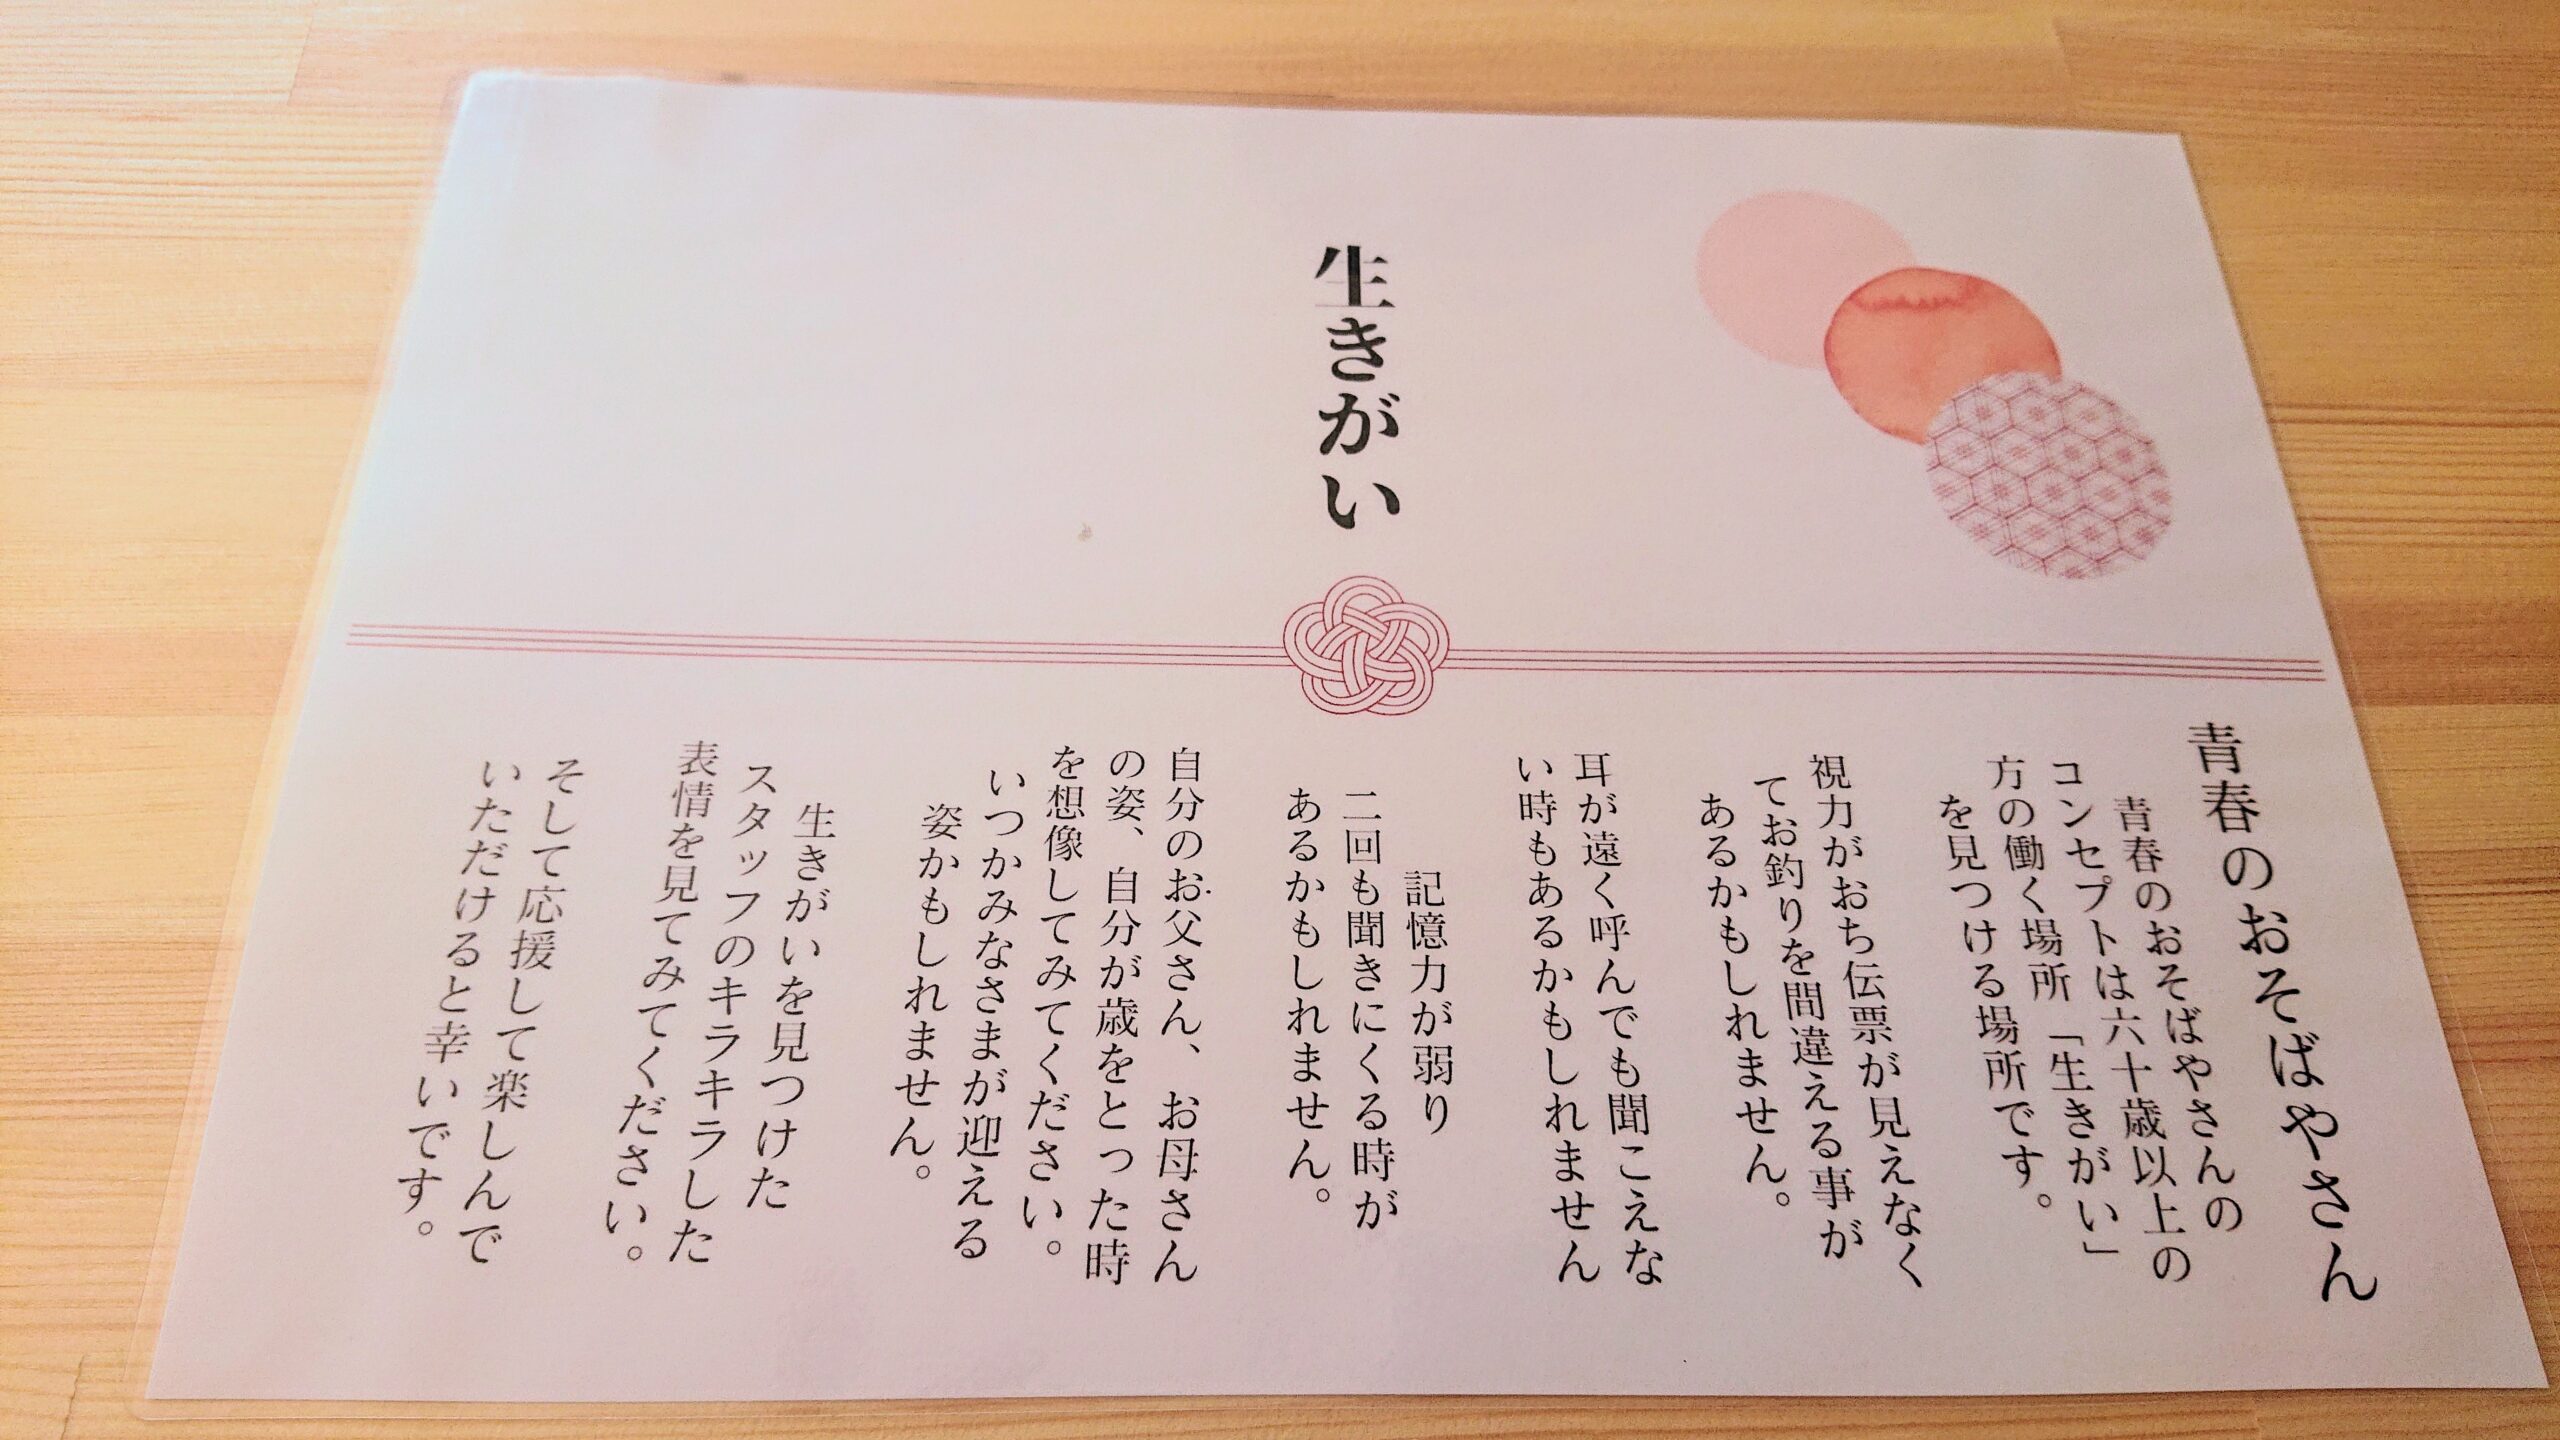 生きがい
青春のおそばやさん
青春のおそばやさんの
コンセプトは六十歳以上の
方の働く場所「生きがい」
を見つける場所です。
視力がおち伝票が見えなく
てお釣りを間違える事が
あるかもしれません。
耳が遠く呼んでも聞こえな
い時もあるかもしれません
記憶力が弱り
二回も聞きにくる時が
あるかもしれません。
自分のお父さん、お母さん
の姿、自分が歳をとった時
を想像してみてください。
いつかみなさまが迎える
姿かもしれません。
生きがいを見つけた
スタッフのキラキラした
表情を見てみてください。
そして応援して楽しんで
いただけると幸いです。